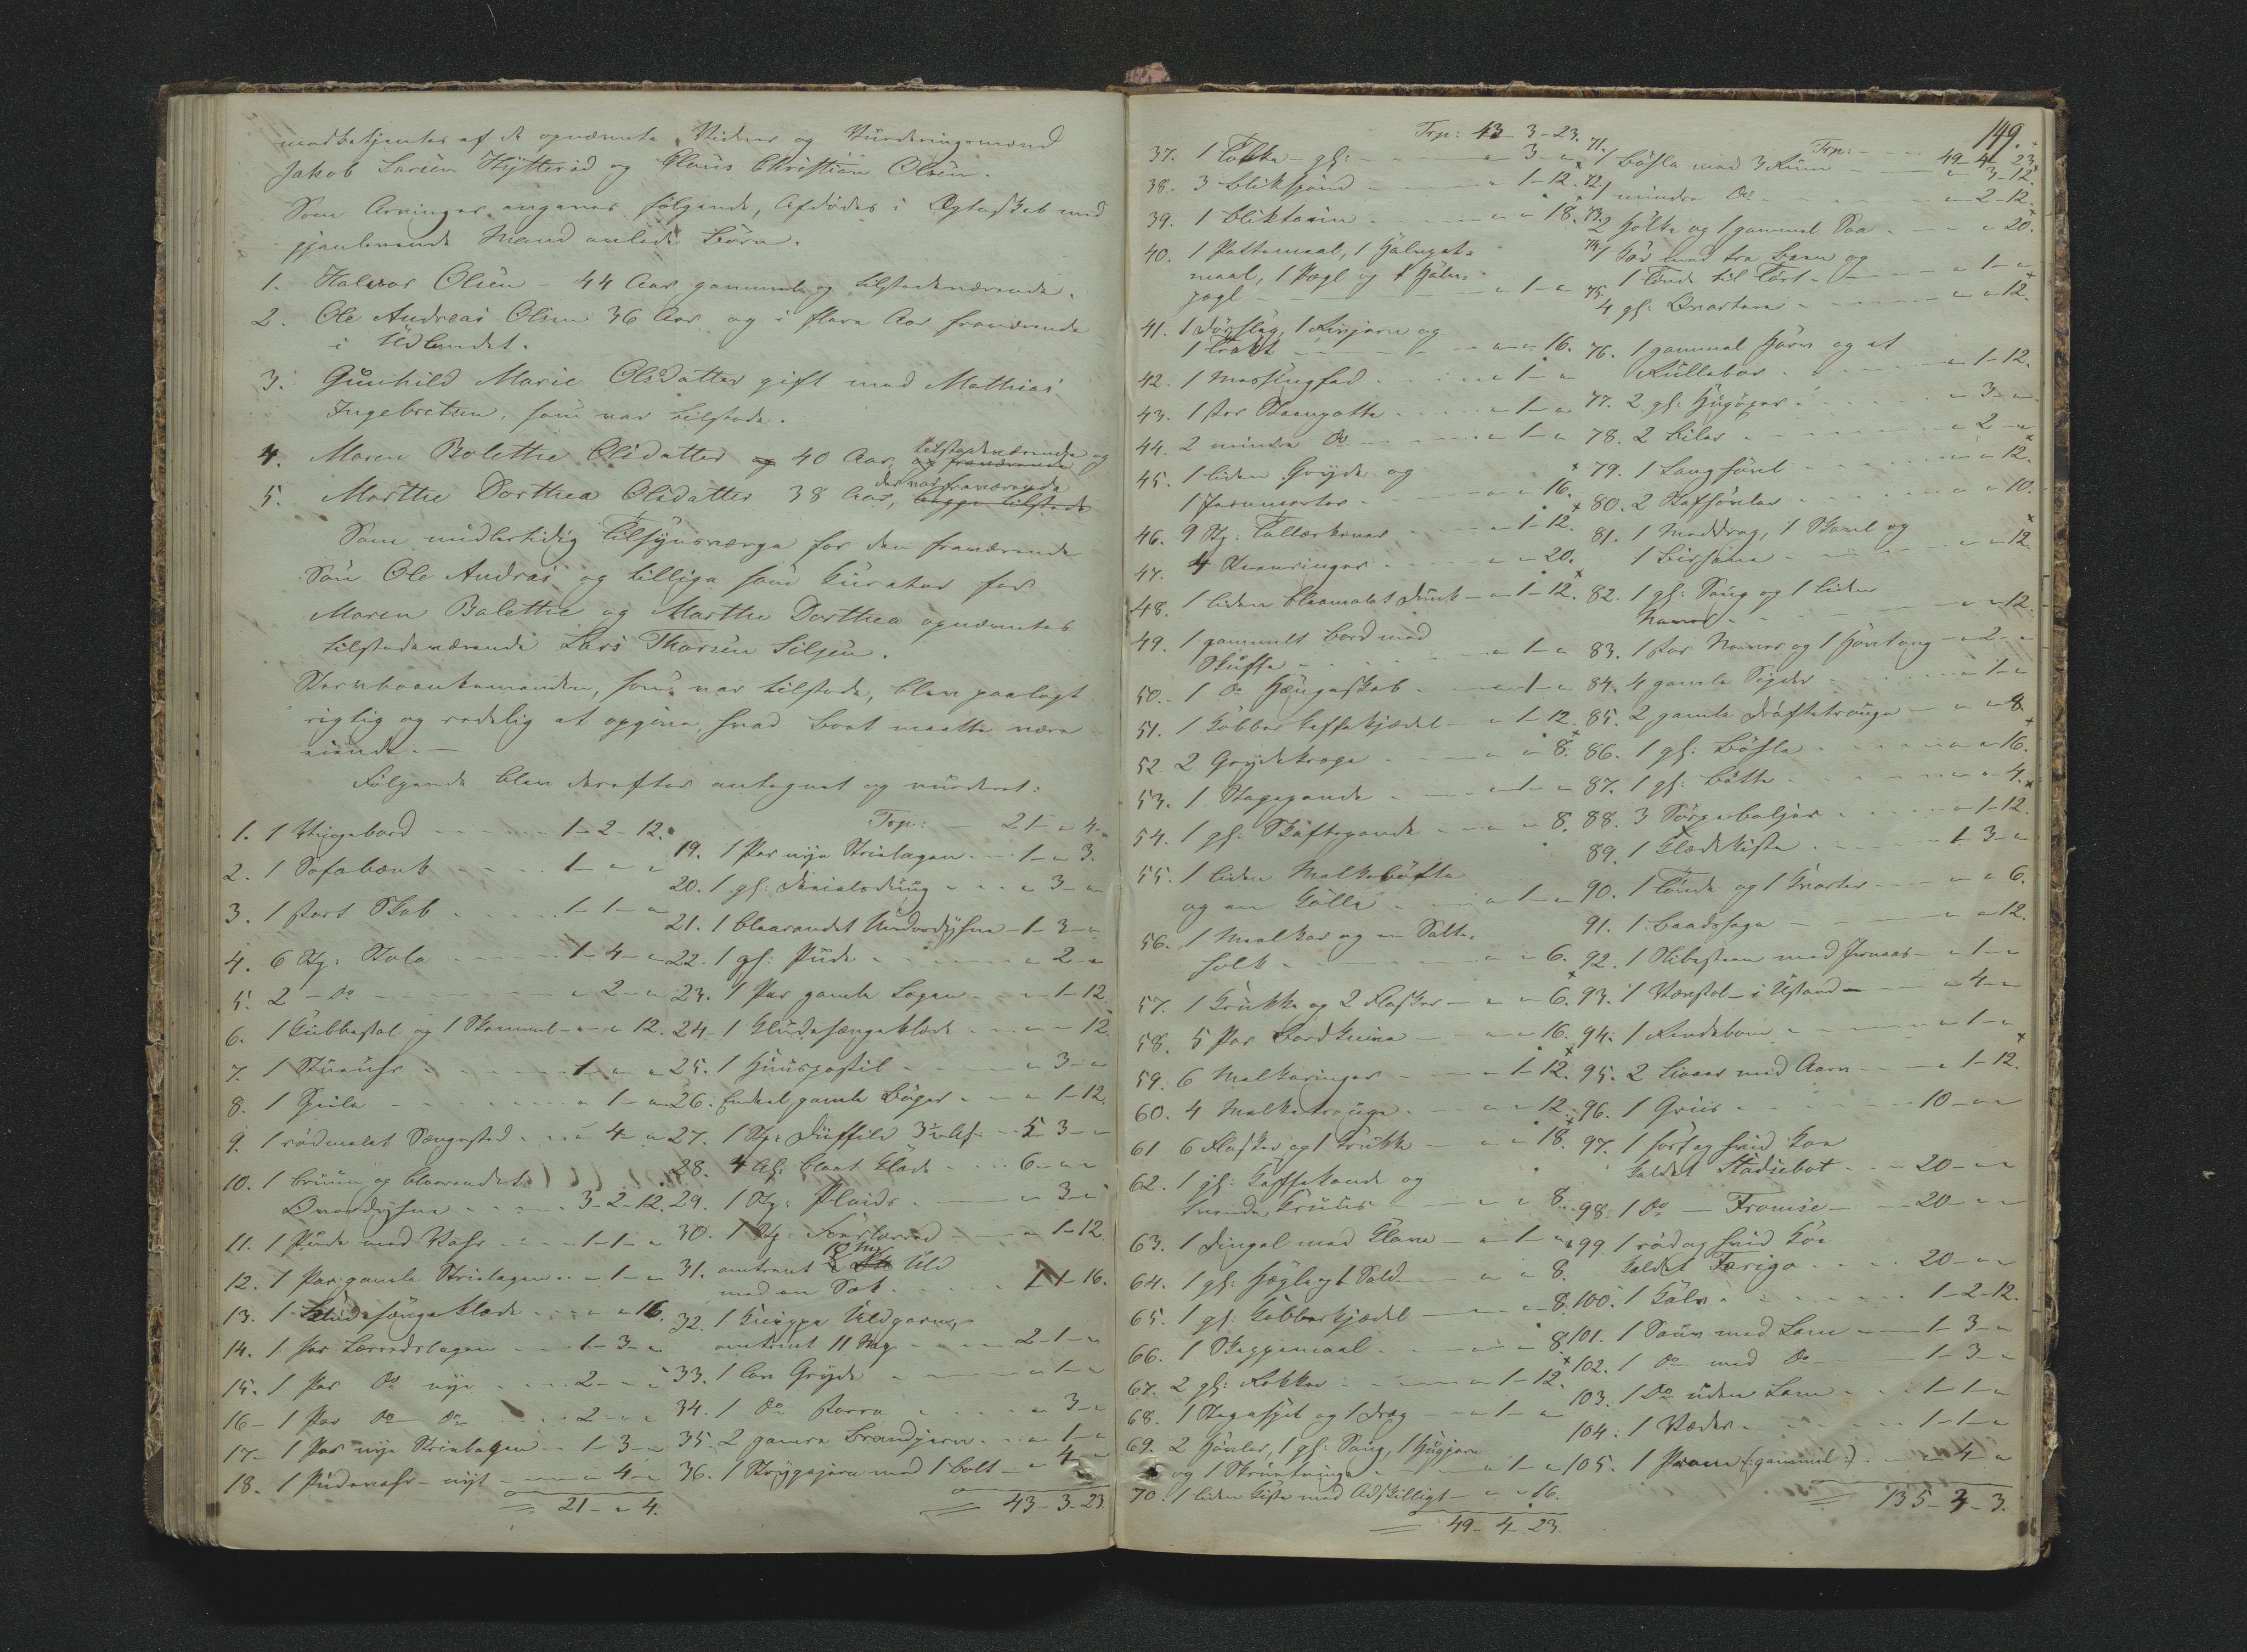 medbetjentes af de opnævnte Vidner og Vurderingsmænd
Jakob Larsen Hytterød og Claus Christian Olsen.
Som Arvinger angaves følgende, Afdødes i Ægteskab med
gjenlevende Mand avlede Børn.
1. Halvor Olsen - 44 Aar gammel og tilstedeværende.
2. Ole Andreas Olsen 36 Aar og i flere Aar fraværende
i Udlandet.
3. Gunhild Marie Olsdatter gift med Mathias
Ingebretsen, som var tilstede.
4. Maren Bolethe Olsdatter og 40 Aar, tilstedeværende og
5. Marthe Dorthea Olsdatter 38 Aar, der var fraværende begge tilstede
Som midlertidig Tilsynsværge for den fraværende
Søn Ole Andreas og tillige som Curator for
Maren Bolethe og Marthe Dorthea opnævntes
tilstedeværende Lars Thorsen Siljen.
Stervboenkemanden, som var tilstede, blev paalagt
rigtig og redelig at opgive, hvad Boet maatte være
eiende. —
Følgende blev derefter antegnet og vurderet:
1. 1 Slagebord 1-2-12.
2. 1 Sofabænk 1 - " "
3. 1 stort Skab 1-1-"
4. 6 Stk: Stole 1-4-"
5. 2 - Do " 2 - "
6. 1 Kubbestol og 1 Skammel " - " 12.
7. 1 Stueuhr 1 - " "
8. 1 Hiile " 1 - "
9. 1 rødmalet Sengested " 4 - "
10. 1 bruun og blaarandet
Overdyhne 3-2-12.
11. 1 Pude med Vahr 1-1-"
12. 1 Par gamle Strielagen " 1 - "
13. 1 Kludesængeklæde " " 16.
14. 1 Par Lærredslagen 1-3-"
15. 1 Par Do nye 2 - " "
16. 1 Par Do Do 2 - " "
17. 1 Par nye Strielagen 1-3-"
18. 1 Pudevahr - nyt " 4 - "
21 - " 4.
Trp: 21 - " 4.
19. 1 Par nye Strielagen 1 - " 3.
20. 1 gl: Dreielsdug " 3 - "
21. 1 blaarandet Underdyhne 1-3-"
22. 1 gl: Pude " 2 - "
23. 1 Par gamle Lagen " 1-12.
24. 1 Kludesængeklæde " " 12.
25. 1 Huuspostil " 3 - "
26. Endeel gamle Bøger " 1-12.
27. 1 Stk: Duffild 3½ Al: 5 3 - "
28. 4 Al: blaat Klæde 6 - " "
29. 1 Stk: Plaids " 3 - "
30. 1 Stk: Lærred " 1-12.
31. omtrent 18 Mk Uld
med en Sæk 1-1-16.
32. 1 Knippe Uldgarn,
omtrent 11 Mk 2-1-"
33. 1 Gryde " 1 - "
34. 1 Do større " 3 - "
35. 2 gamle Brandjern " 1 - "
36. 1 Strygejern med 1 Bolt " 4 - "
43-3-23.
149.
Trp: 43-3-23.
37. 1 Takke - gl: " 3 - "
38. 3 Blikspand " 1-12.
39. 1 Bliktarin " " 18.
40. 1 Pottemaal, 1 Halvpot-
maal, 1 Pægl og 1 Halv-
pægl " 1 - "
41. 1 Dørslag, 1 Rivjern og
1 Trakt " " 16.
42. 1 Messingfad " 1 - "
43. 1 stor Steenpotte " 1 - "
44. 2 mindre Do " 1 - "
45. 1 liden Gryde og
1 Jernmorter " " 16.
46. 9 Stk: Tallerkener " 1-12.
47. 4 Steenringer " " 20.
48. 1 liden blaamalet Dunk " 1-12.
49. 1 gammelt Bord med
Skuffe " 1 - "
50. 1 Do Hængeskab " 1 - "
51. 1 Kobber Kaffekjedel " 1-12.
52. 2 Grydekroge " " 8.
53. 1 Stegepande " 1 - "
54. 1 gl: Skaftepande " " 8.
55. 1 liden Malkebøtte
og en Kolle " 1 - "
56. 1 Meelkar og en Salt-
holk " " 6.
57. 1 Krukke og 2 Flasker " " 6.
58. 5 Par Bordknive " " 16.
59. 6 Melkeringer " 1-12.
60. 4 Melketrauge " " 12.
61. 6 Flasker og 1 Krukke " " 18.
62. 1 gl: Kaffekande og
Kruus " " 8.
63. 1 Dingel med Klave " 1 - "
64. 1 gl: Hægle og 1 Sold " " 8.
65. 1 gl: Kobberkjedel " " 8.
66. 1 Skjeppemaal " " 8.
67. 2 gl: Rokker " 1-12.
68. 1 Stegespet og 1 Dreg " 1 - "
69. 2 Høvler, 1 gl: Saug, 1 Hugjern
og 1 Skruetvinge " 1 - "
70. 1 liden Kiste med Adskilligt " " 16.
49-4-23.
Trp: 49-4-23.
71. 1 Bøsle med 3 Rum " 3-12.
72. 1 mindre Do " 2-12.
73. 2 Holke og 1 gammel Saa " " 20.
74. 1 Fad med tre Been og
1 Tønde til Tørt " 1 - "
75. 4 gl: Qvartere " " 12.
76. 1 gammel Harv og et
Rullebor " 1-12.
77. 2 gl: Hugøxer " 3 - "
78. 2 Biler " 2 - "
79. 1 Langhøvl " " 12.
80. 2 Høvler " " 10.
81. 1 Meddrag, 1 Skavl og
1 Bissone " " 12.
82. 1 gl: Saug og 1 liden
Naver " " 12.
83. 1 stor Naver og 1 Hovtang " 2 - "
84. 4 gamle Sigder " 1 - "
85. 2 gamle Drøftetrauge " " 8.
86. 1 gl: Bøsle " " 16.
87. 1 gl: Bøtte " " 4.
88. 3 Sørpebaljer " 1-12.
89. 1 Klædekiste 1-3-"
90. 1 Tønde og 1 Kvarter " " 6.
91. 1 Baadssage " " 12.
92. 1 Slibesteen med Jernaas " 1 - "
93. 1 Vævstol - i Ustand " 4 - "
94. 1 Rendebom " 1 - "
95. 2 Liaaer med Aarv " 1-12.
96. 1 Griis 10 - " "
97. 1 sort og hvid Koe
kaldet Stadsebot 20 - " "
98. 1 Do - Fromsie 20 - " "
99. 1 rød og hvid Koe
kaldet Færigo 20 - " "
100. 1 Kalv 1-2-12.
101. 1 Sau med Lam 1-3-"
102. 1 Do med Do 1-3-"
103. 1 Do uden Lam 1-1-"
104. 1 Væder 1-1-"
105. 1 Pram (: gammel :) " 4 - "
135-3-3.